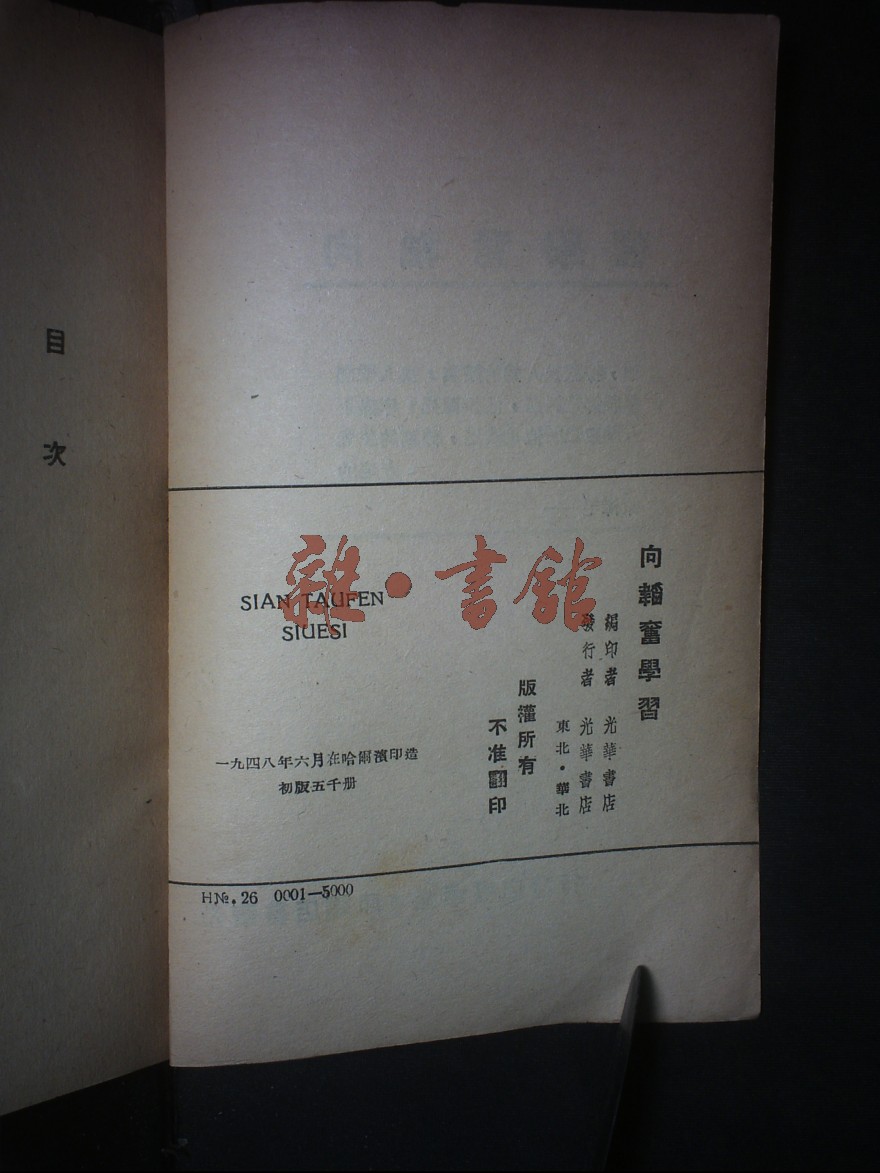 向韜奮學習
編印者 光華書店
發行者 光華書店
東北·華北
版權所有
不准翻印
SIAN TAUFEN
SIUESI
一九四八年六月在哈爾濱印造
初版五千册
H№. 26 0001—5000
目次
雜·書館